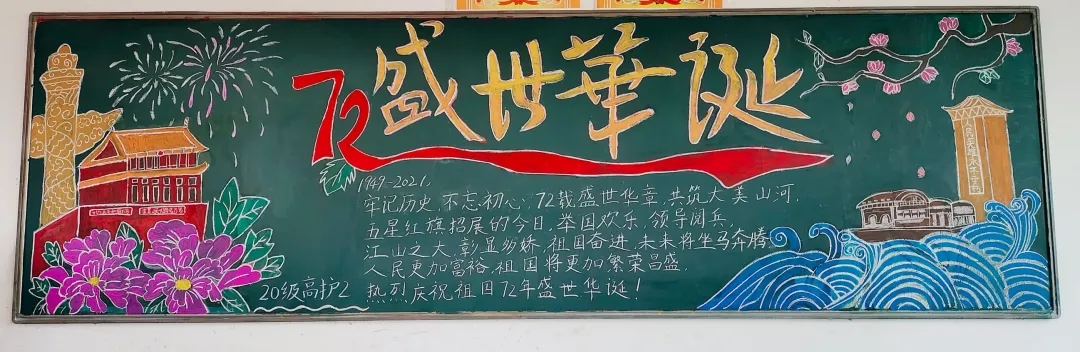 72盛世華诞
1949-2021,
牢记历史,不忘初心;72载盛世华章,共筑大美山河,
五星红旗招展的今日,举国欢乐,领导阅兵,
江山之大,彰显多娇,祖国奋进,未来将坐马奔腾,
人民更加富裕,祖国将更加繁荣昌盛.
热烈庆祝祖国72年盛世华诞!
20级高护2
人民英雄永垂不朽